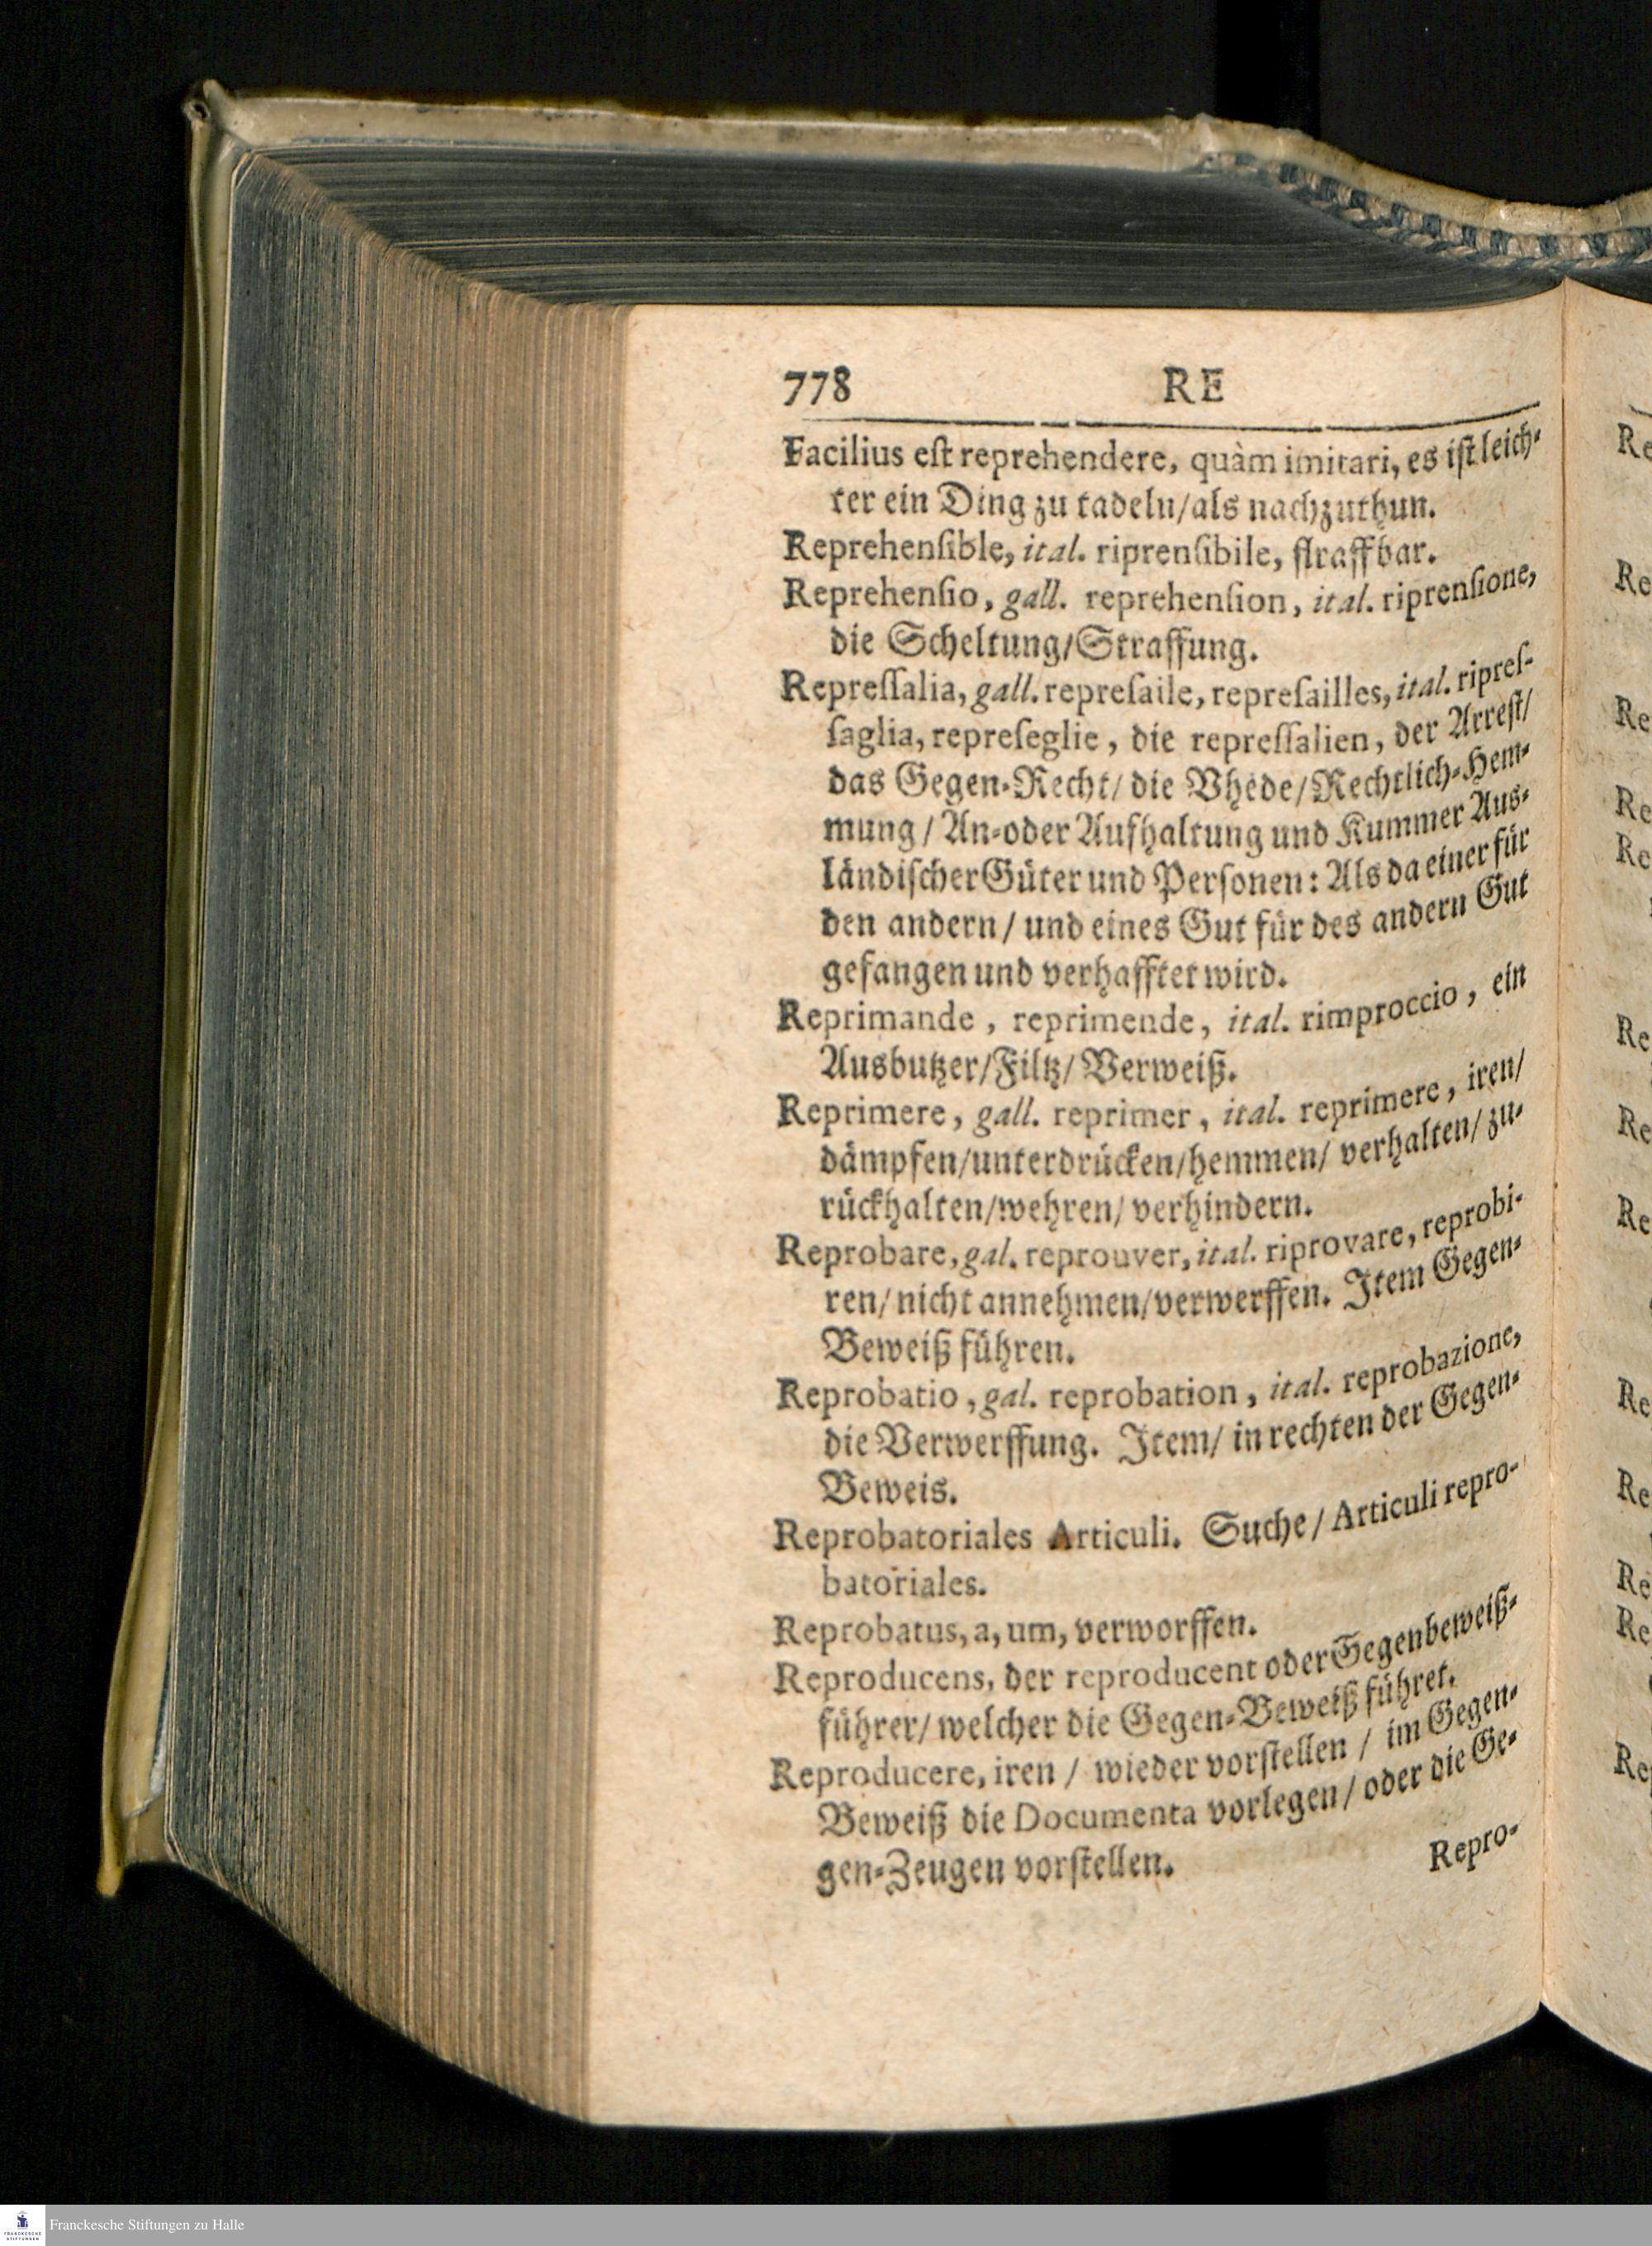 778 RE
Facilius eſt reprehendere, quàm imitari, es iſt leich-
ter ein Ding zu tadeln/als nachzuthun.
Reprehenſible, ital. riprenſibile, ſtraffbar.
Reprehenſio, gall. reprehenſion, ital. riprenſione,
die Scheltung/Straffung.
Repreſſalia, gall. repreſaile, repreſailles, ital. ripreſ-
ſaglia, repreſeglie, die repreſſalien, der Arreſt/
das Gegen-Recht/ die Vhede/Rechtlich-Hem-
mung / An-oder Aufhaltung und Kummer Aus-
ländiſcher Güter und Perſonen: Als da einer für
den andern/ und eines Gut für des andern Gut
gefangen und verhafftet wird.
Reprimande, reprimende, ital. rimproccio, ein
Ausbutzer/Filtz/ Verweiß.
Reprimere, gall. reprimer, ital. reprimere, iren/
dämpfen/unterdrücken/hemmen/ verhalten/ zu-
rückhalten/wehren/ verhindern.
Reprobare, gal. reprouver, ital. riprovare, reprobi-
ren/ nicht annehmen/verwerffen. Item Gegen-
Beweiß führen.
Reprobatio, gal. reprobation, ital. reprobazione,
die Verwerffung. Item/ in rechten der Gegen-
Beweis.
Reprobatoriales Articuli. Suche/ Articuli repro-
batoriales.
Reprobatus, a, um, verworffen.
Reproducens, der reproducent oder Gegenbeweiß-
führer/ welcher die Gegen-Beweiß führet.
Reproducere, iren / wieder vorſtellen / im Gegen-
Beweiß die Documenta vorlegen/ oder die Ge-
gen-Zeugen vorſtellen.
Repro-
Re
Re
Re
Re
Re
Re
Re
Re
Re
Re
Re
Re
Re
Franckesche Stiftungen zu Halle